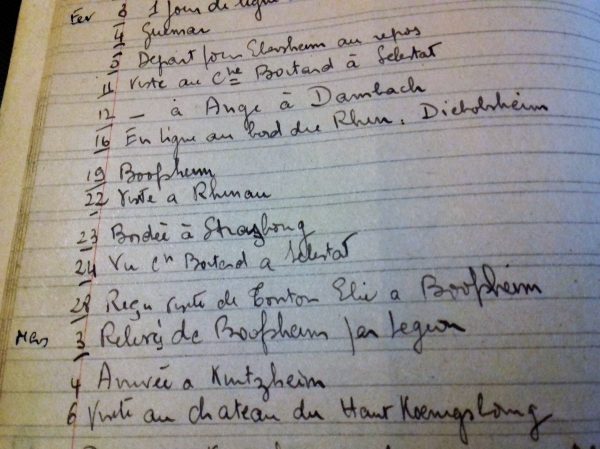 Fev 3 1 jour de ligne
4 Guemar
5 Départ pour Ebersheim au repos
11 Visite au Cne Boutard à Selestat
12 _ à Ange à Dambach
16 En ligne au bord du Rhin. Diebolsheim
19 Boofsheim
22 Visite a Rhinau
23 Bordée à Strasbourg
24 Vu Cn Boutard a Selestat
28 Reçu visite de Tonton Elie a Boofsheim
Mars 3 Relevés de Boofsheim par Legion
4 Arrivée a Kintzheim
6 Visite au chateau du Haut Koenigsbourg